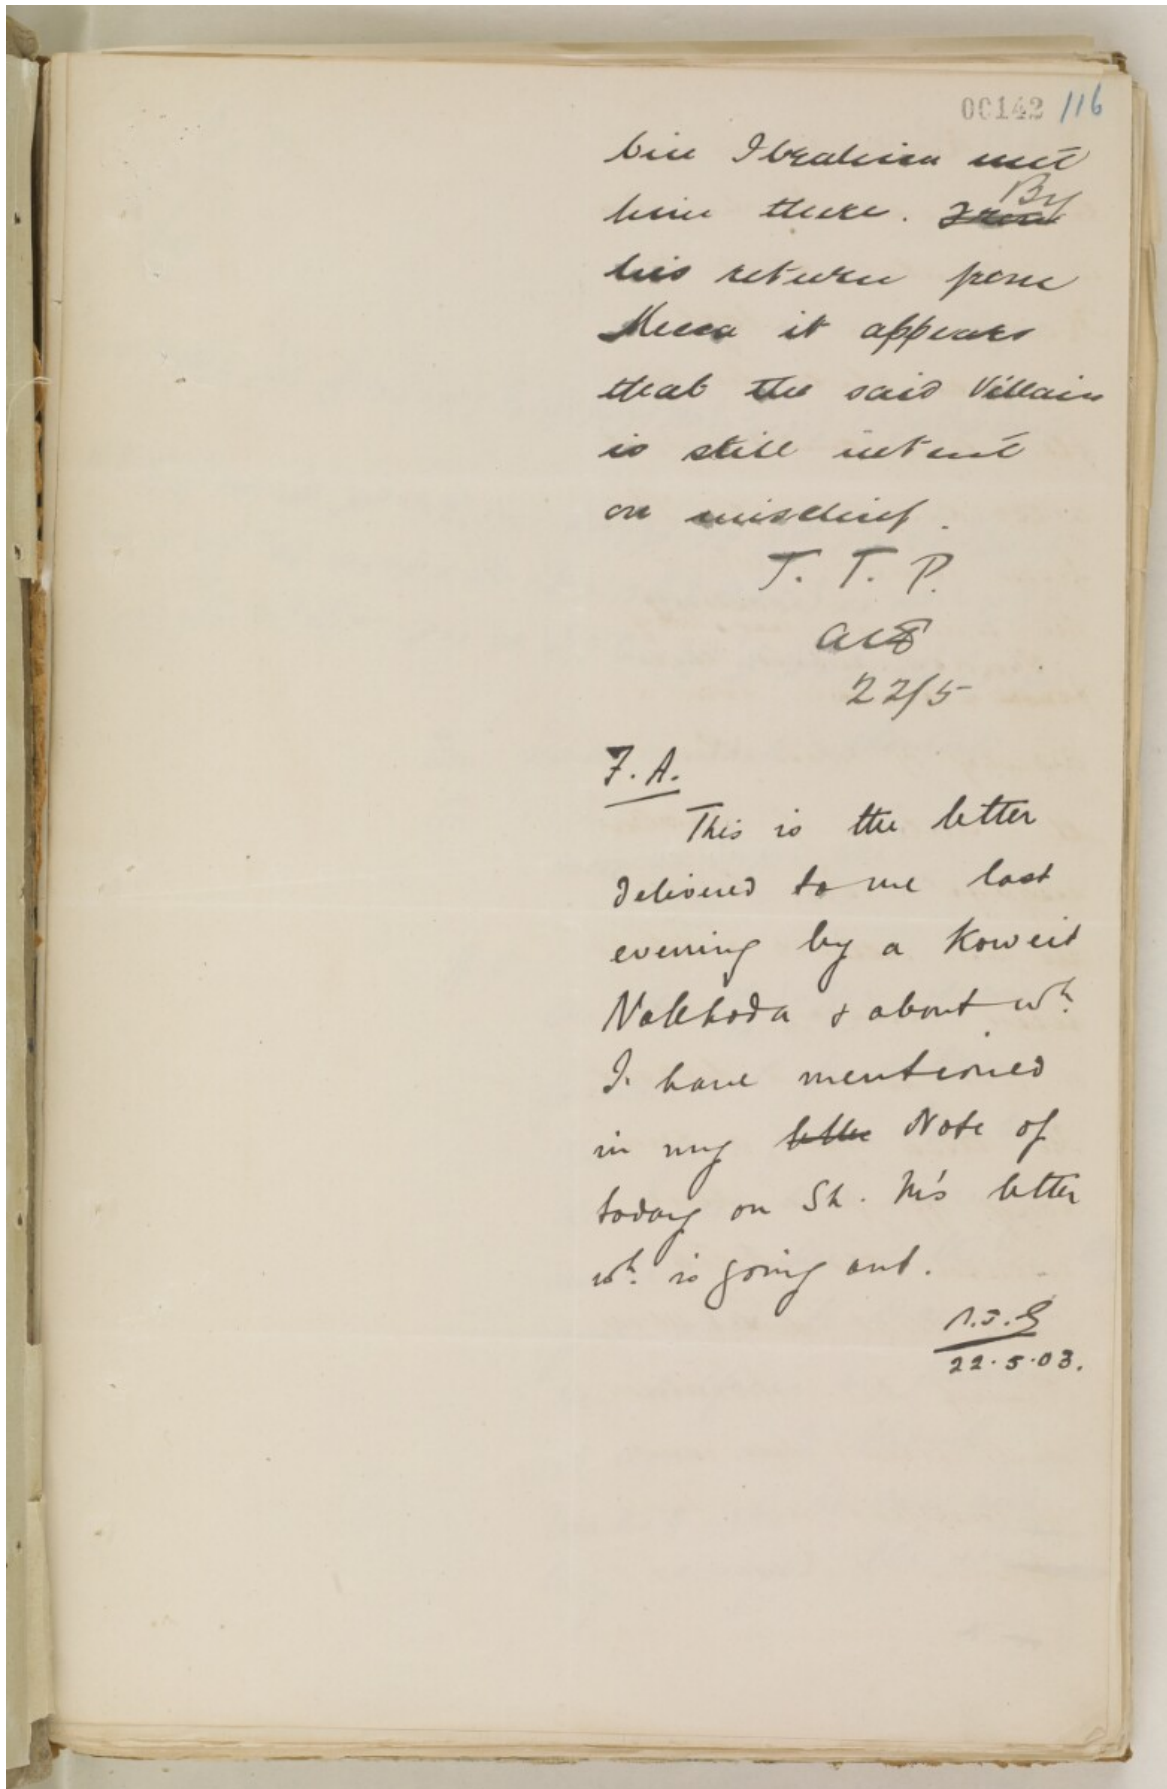 00142 116
bin Ibrahim met
By
him there. From
his return from
Mecca it appears
that the said Villain
is still intent
on mischief.
T. T. P.
22/5
F. A.
This is the letter
delivered to me last
evening by a Koweit
Nakhoda & about wh.
I have mentioned
in my letter Note of
today on Sh. M's letter
wh. is going out.
22.5.03.